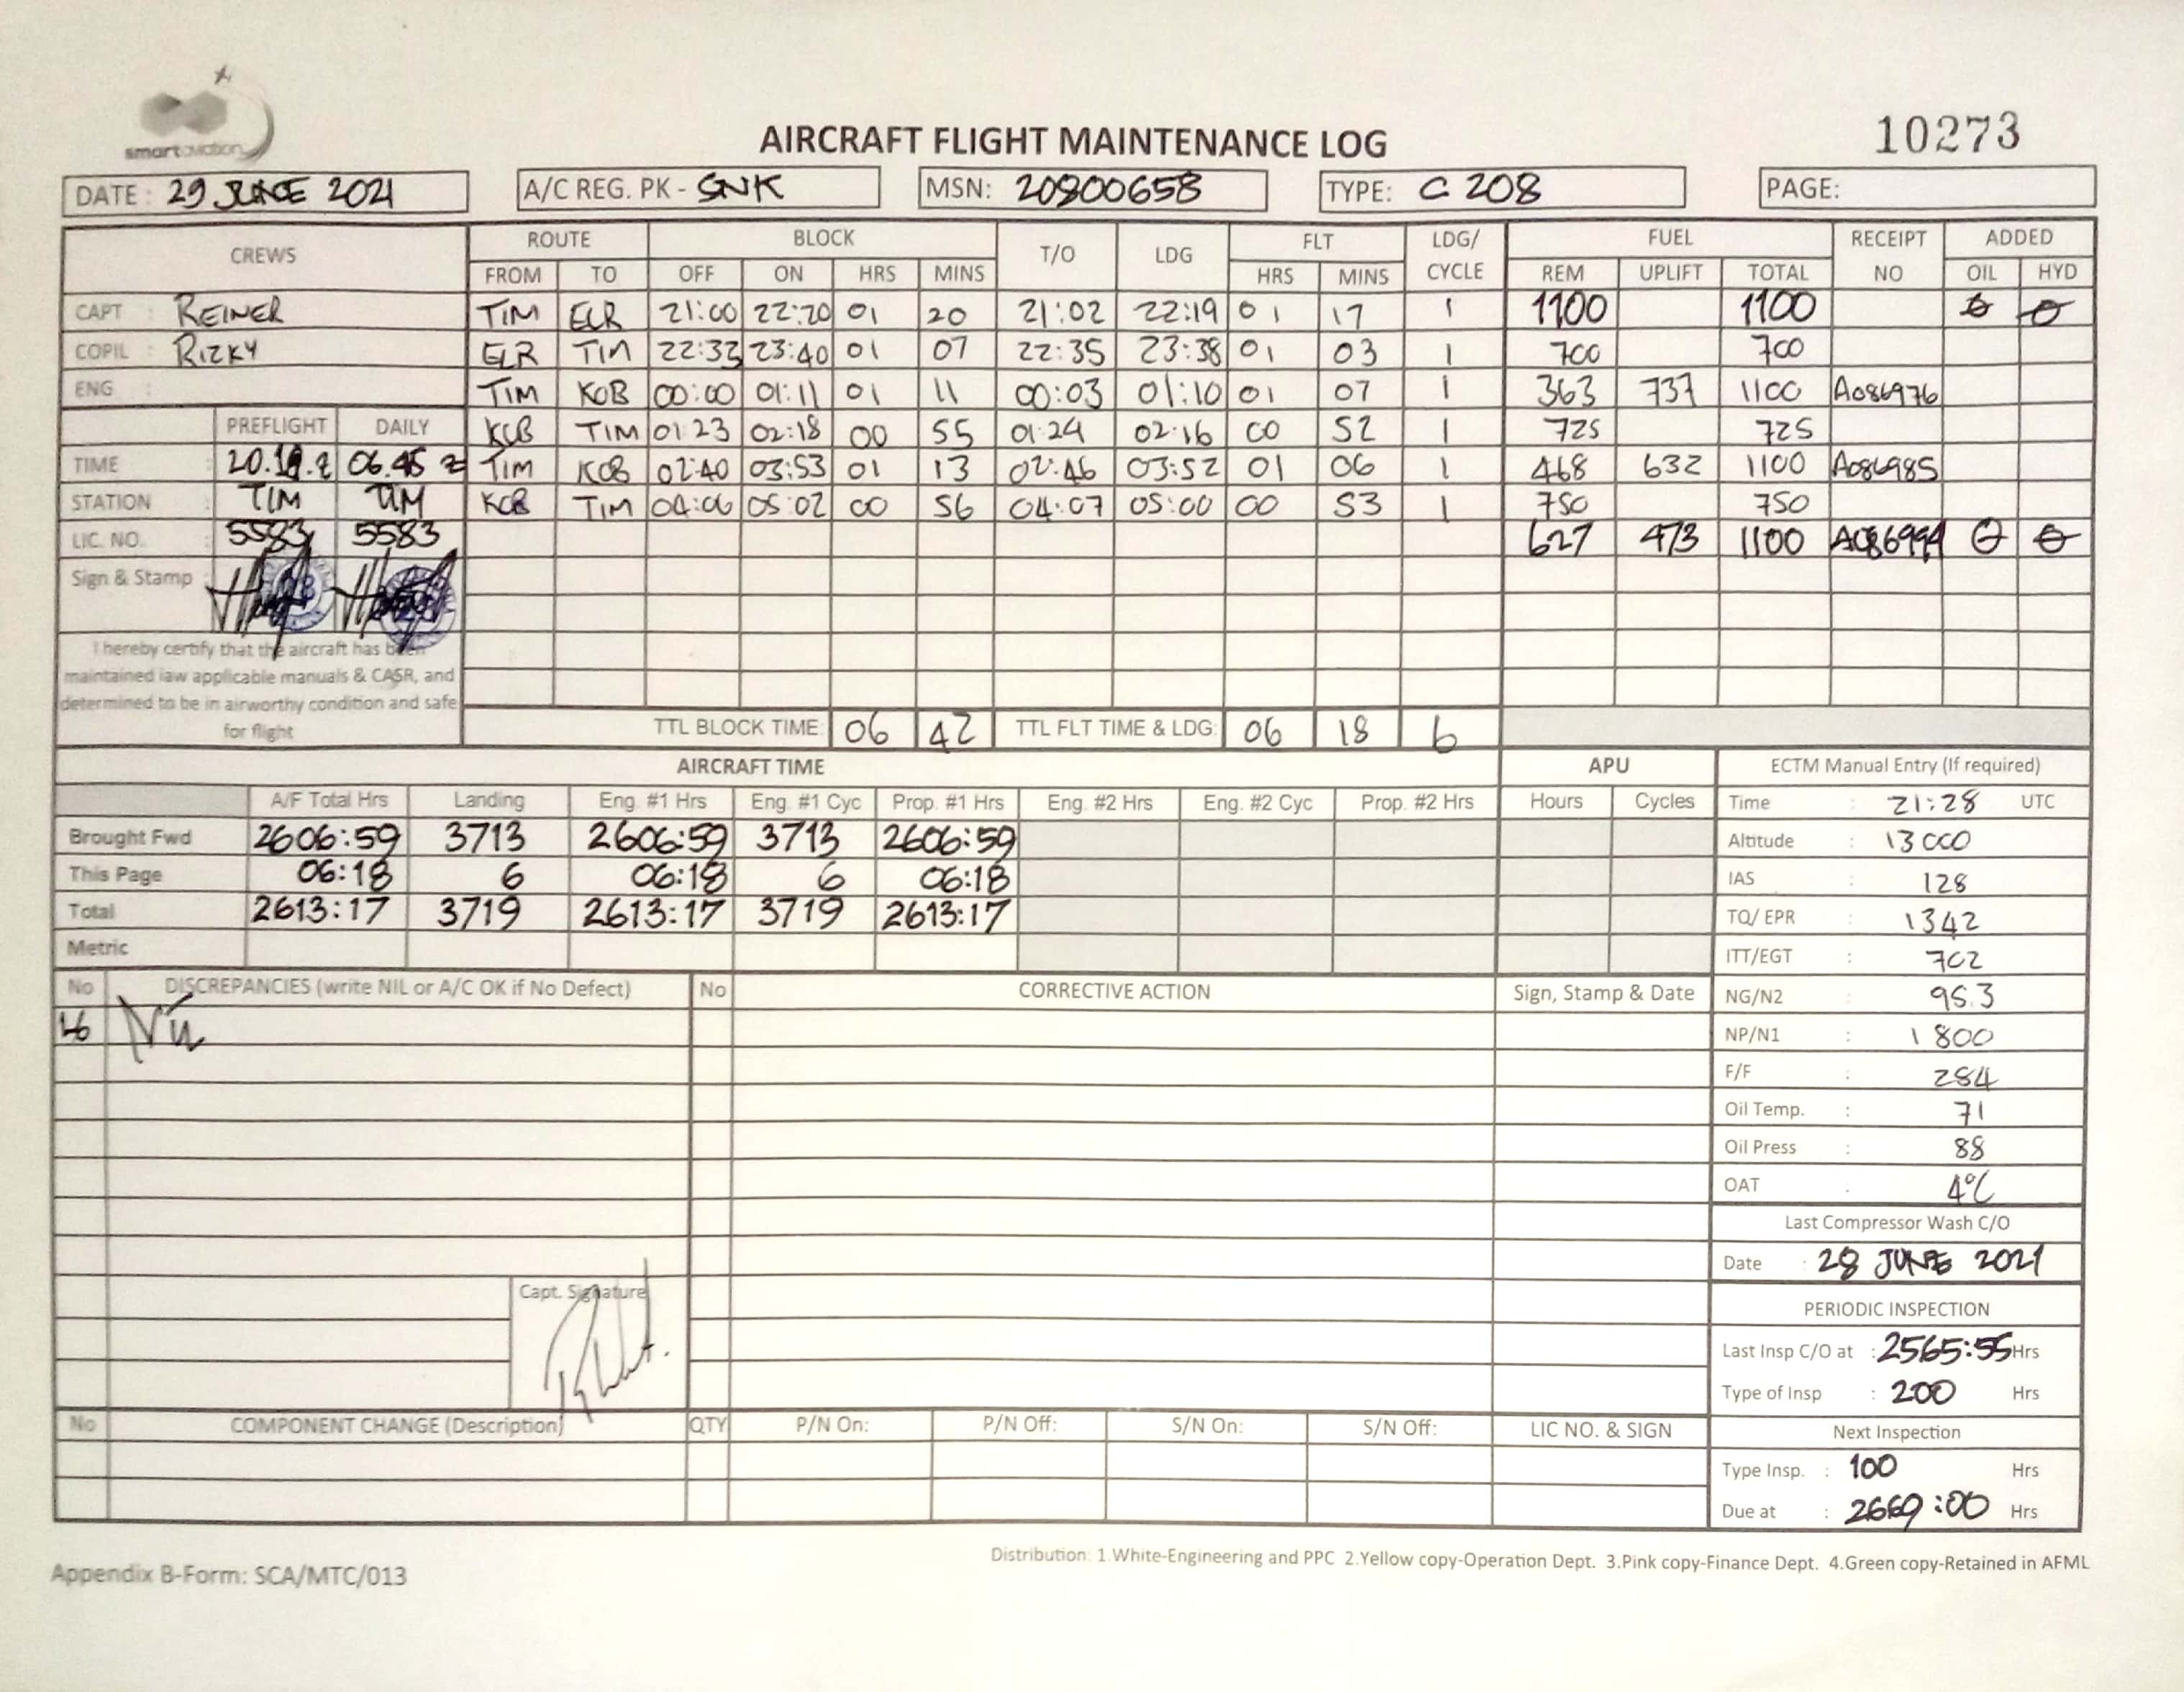 smartaviation
AIRCRAFT FLIGHT MAINTENANCE LOG
10273
DATE : 29 JUNE 2021 A/C REG. PK - SNK MSN: 20800658 TYPE: C 208 PAGE:
CREWS ROUTE BLOCK T/O LDG FLT LDG/ CYCLE FUEL RECEIPT NO ADDED
FROM TO OFF ON HRS MINS HRS MINS REM UPLIFT TOTAL OIL HYD
CAPT : REINER TIM ELR 21:00 22:20 01 20 21:02 22:19 01 17 1 1100 1100
COPIL : RIZKY ELR TIM 22:33 23:40 01 07 22:35 23:38 01 03 1 700 700
ENG : TIM KOB 00:00 01:11 01 11 00:03 01:10 01 07 1 363 737 1100 A086976
PREFLIGHT DAILY KCB TIM 01:23 02:18 00 55 01:24 02:16 00 52 1 725 725
TIME : 20. z 06.45 z TIM KOB 02:40 03:53 01 13 02:46 03:52 01 06 1 468 632 1100 A086985
STATION TIM TIM KCB TIM 04:06 05:02 00 56 04:07 05:00 00 53 1 750 750
LIC. NO. : 5583 5583 627 473 1100 A086994
Sign & Stamp :
I hereby certify that the aircraft has been
maintained iaw applicable manuals & CASR, and
determined to be in airworthy condition and safe
for flight
TTL BLOCK TIME: 06 42 TTL FLT TIME & LDG: 06 18 6
AIRCRAFT TIME APU ECTM Manual Entry (If required)
A/F Total Hrs Landing Eng. #1 Hrs Eng. #1 Cyc Prop. #1 Hrs Eng. #2 Hrs Eng. #2 Cyc Prop. #2 Hrs Hours Cycles Time : 21:28 UTC
Brought Fwd 2606:59 3713 2606:59 3713 2606:59 Altitude : 13000
This Page 06:18 6 06:18 6 06:18 IAS : 128
Total 2613:17 3719 2613:17 3719 2613:17 TQ/ EPR : 1342
Metric ITT/EGT : 702
No DISCREPANCIES (write NIL or A/C OK if No Defect) No CORRECTIVE ACTION Sign, Stamp & Date NG/N2 : 95.3
Nil NP/N1 : 1800
F/F : 284
Oil Temp. : 71
Oil Press : 88
OAT : 4°C
Last Compressor Wash C/O
Date : 28 JUNE 2021
Capt. Signature
PERIODIC INSPECTION
Last Insp C/O at : 2565:55 Hrs
Type of Insp : 200 Hrs
No COMPONENT CHANGE (Description) QTY P/N On: P/N Off: S/N On: S/N Off: LIC NO. & SIGN Next Inspection
Type Insp. : 100 Hrs
Due at : 2669:00 Hrs
Distribution: 1.White-Engineering and PPC 2.Yellow copy-Operation Dept. 3.Pink copy-Finance Dept. 4.Green copy-Retained in AFML
Appendix B-Form: SCA/MTC/013